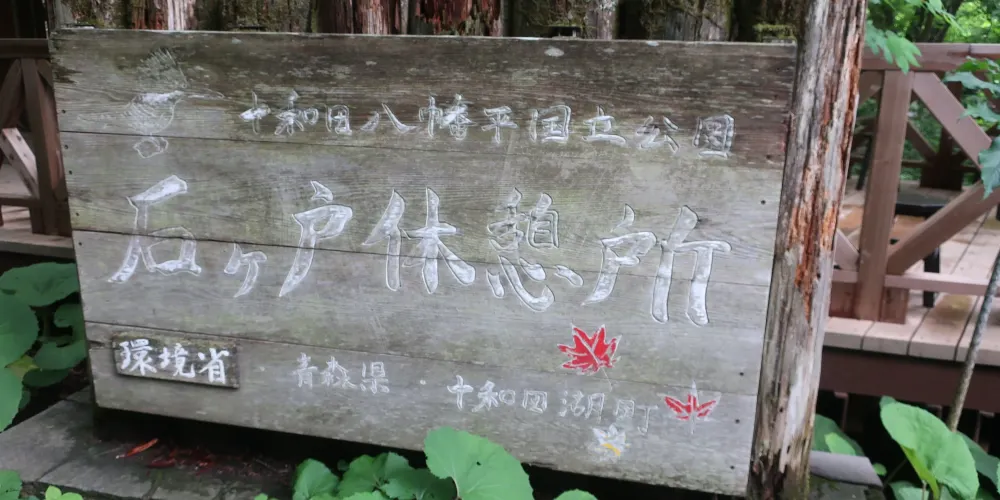 十和田八幡平国立公園
石ヶ戸休憩所
環境省 青森県 十和田湖町